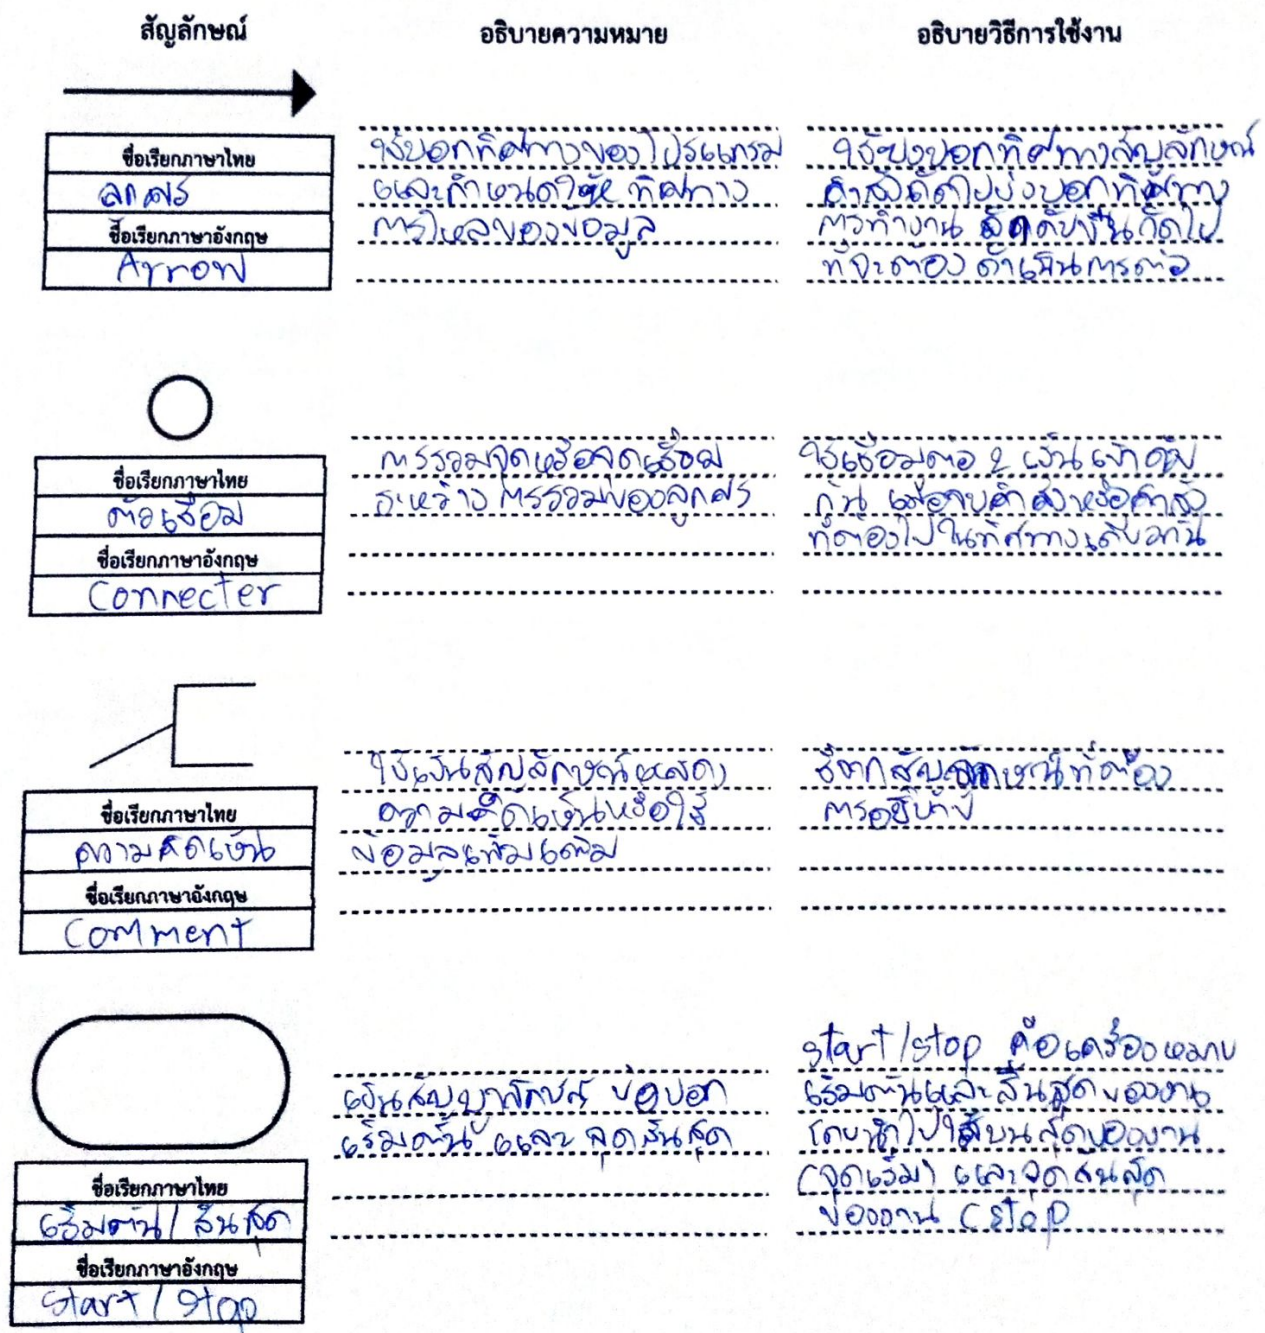 สัญลักษณ์ อธิบายความหมาย อธิบายวิธีการใช้งาน
ชื่อเรียกภาษาไทย
ลูกศร
ชื่อเรียกภาษาอังกฤษ
Arrow
ใช้บอกทิศทางของโปรแกรม
และกำหนดให้ ทิศทาง
การไหลของข้อมูล
ใช้บ่งบอกทิศทางสัญลักษณ์
คำสั่งถัดไปบ่งบอกทิศทาง
การทำงาน ลำดับขั้นถัดไป
ที่จะต้อง ดำเนินการต่อ
ชื่อเรียกภาษาไทย
ตัวเชื่อม
ชื่อเรียกภาษาอังกฤษ
Connecter
การรวมจุดหรือจุดเชื่อม
ระหว่าง การรวมของลูกศร
ใช้เชื่อมต่อ 2 เส้นเข้าด้วย
กัน เมื่อจบคำสั่งหรือคำสั่ง
ที่ต้องไปในทิศทางเดียวกัน
ชื่อเรียกภาษาไทย
ความคิดเห็น
ชื่อเรียกภาษาอังกฤษ
Comment
ใช้เป็นสัญลักษณ์แสดง
ความคิดเห็นหรือใช้
ข้อมูลเพิ่มเติม
สัญลักษณ์ที่ต้อง
การอธิบาย
ชื่อเรียกภาษาไทย
เริ่มต้น / สิ้นสุด
ชื่อเรียกภาษาอังกฤษ
Start / Stop
เป็นสัญญาลักษณ์ บ่งบอก
เริ่มต้น และ จุดสิ้นสุด
Start / Stop คือเครื่องหมาย
เริ่มต้นและสิ้นสุดของงาน
โดยนำไปใส่บนสุดของงาน
(จุดเริ่ม) และจุดสิ้นสุด
ของงาน (Stop